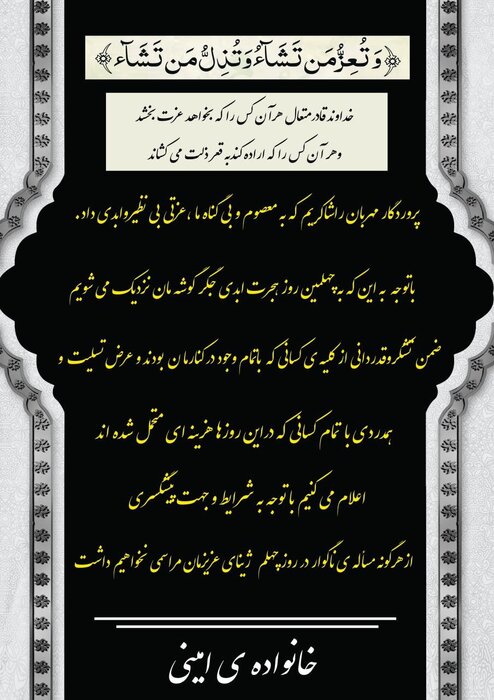 ﴿وَتُعِزُّ مَن تَشَآءُ وَتُذِلُّ مَن تَشَآءُ﴾
خداوند قادر متعال هر آن کس را که بخواهد عزت بخشد
و هر آن کس را که اراده کند به قعر ذلت می کشاند
پروردگار مهربان را شاکریم که به معصوم و بی گناه ما ، عزتی بی نظیر و ابدی داد .
با توجه به این که به چهلمین روز هجرت ابدی جگر گوشه مان نزدیک می شویم
ضمن تشکر و قدردانی از کلیه ی کسانی که با تمام وجود در کنارمان بودند و عرض تسلیت و
همدردی با تمام کسانی که در این روزها هزینه ای متحمل شده اند
اعلام می کنیم با توجه به شرایط و جهت پیشگیری
از هرگونه مسأله ی ناگوار در روز چهلم ژینای عزیزمان مراسمی نخواهیم داشت
خانواده ی امینی